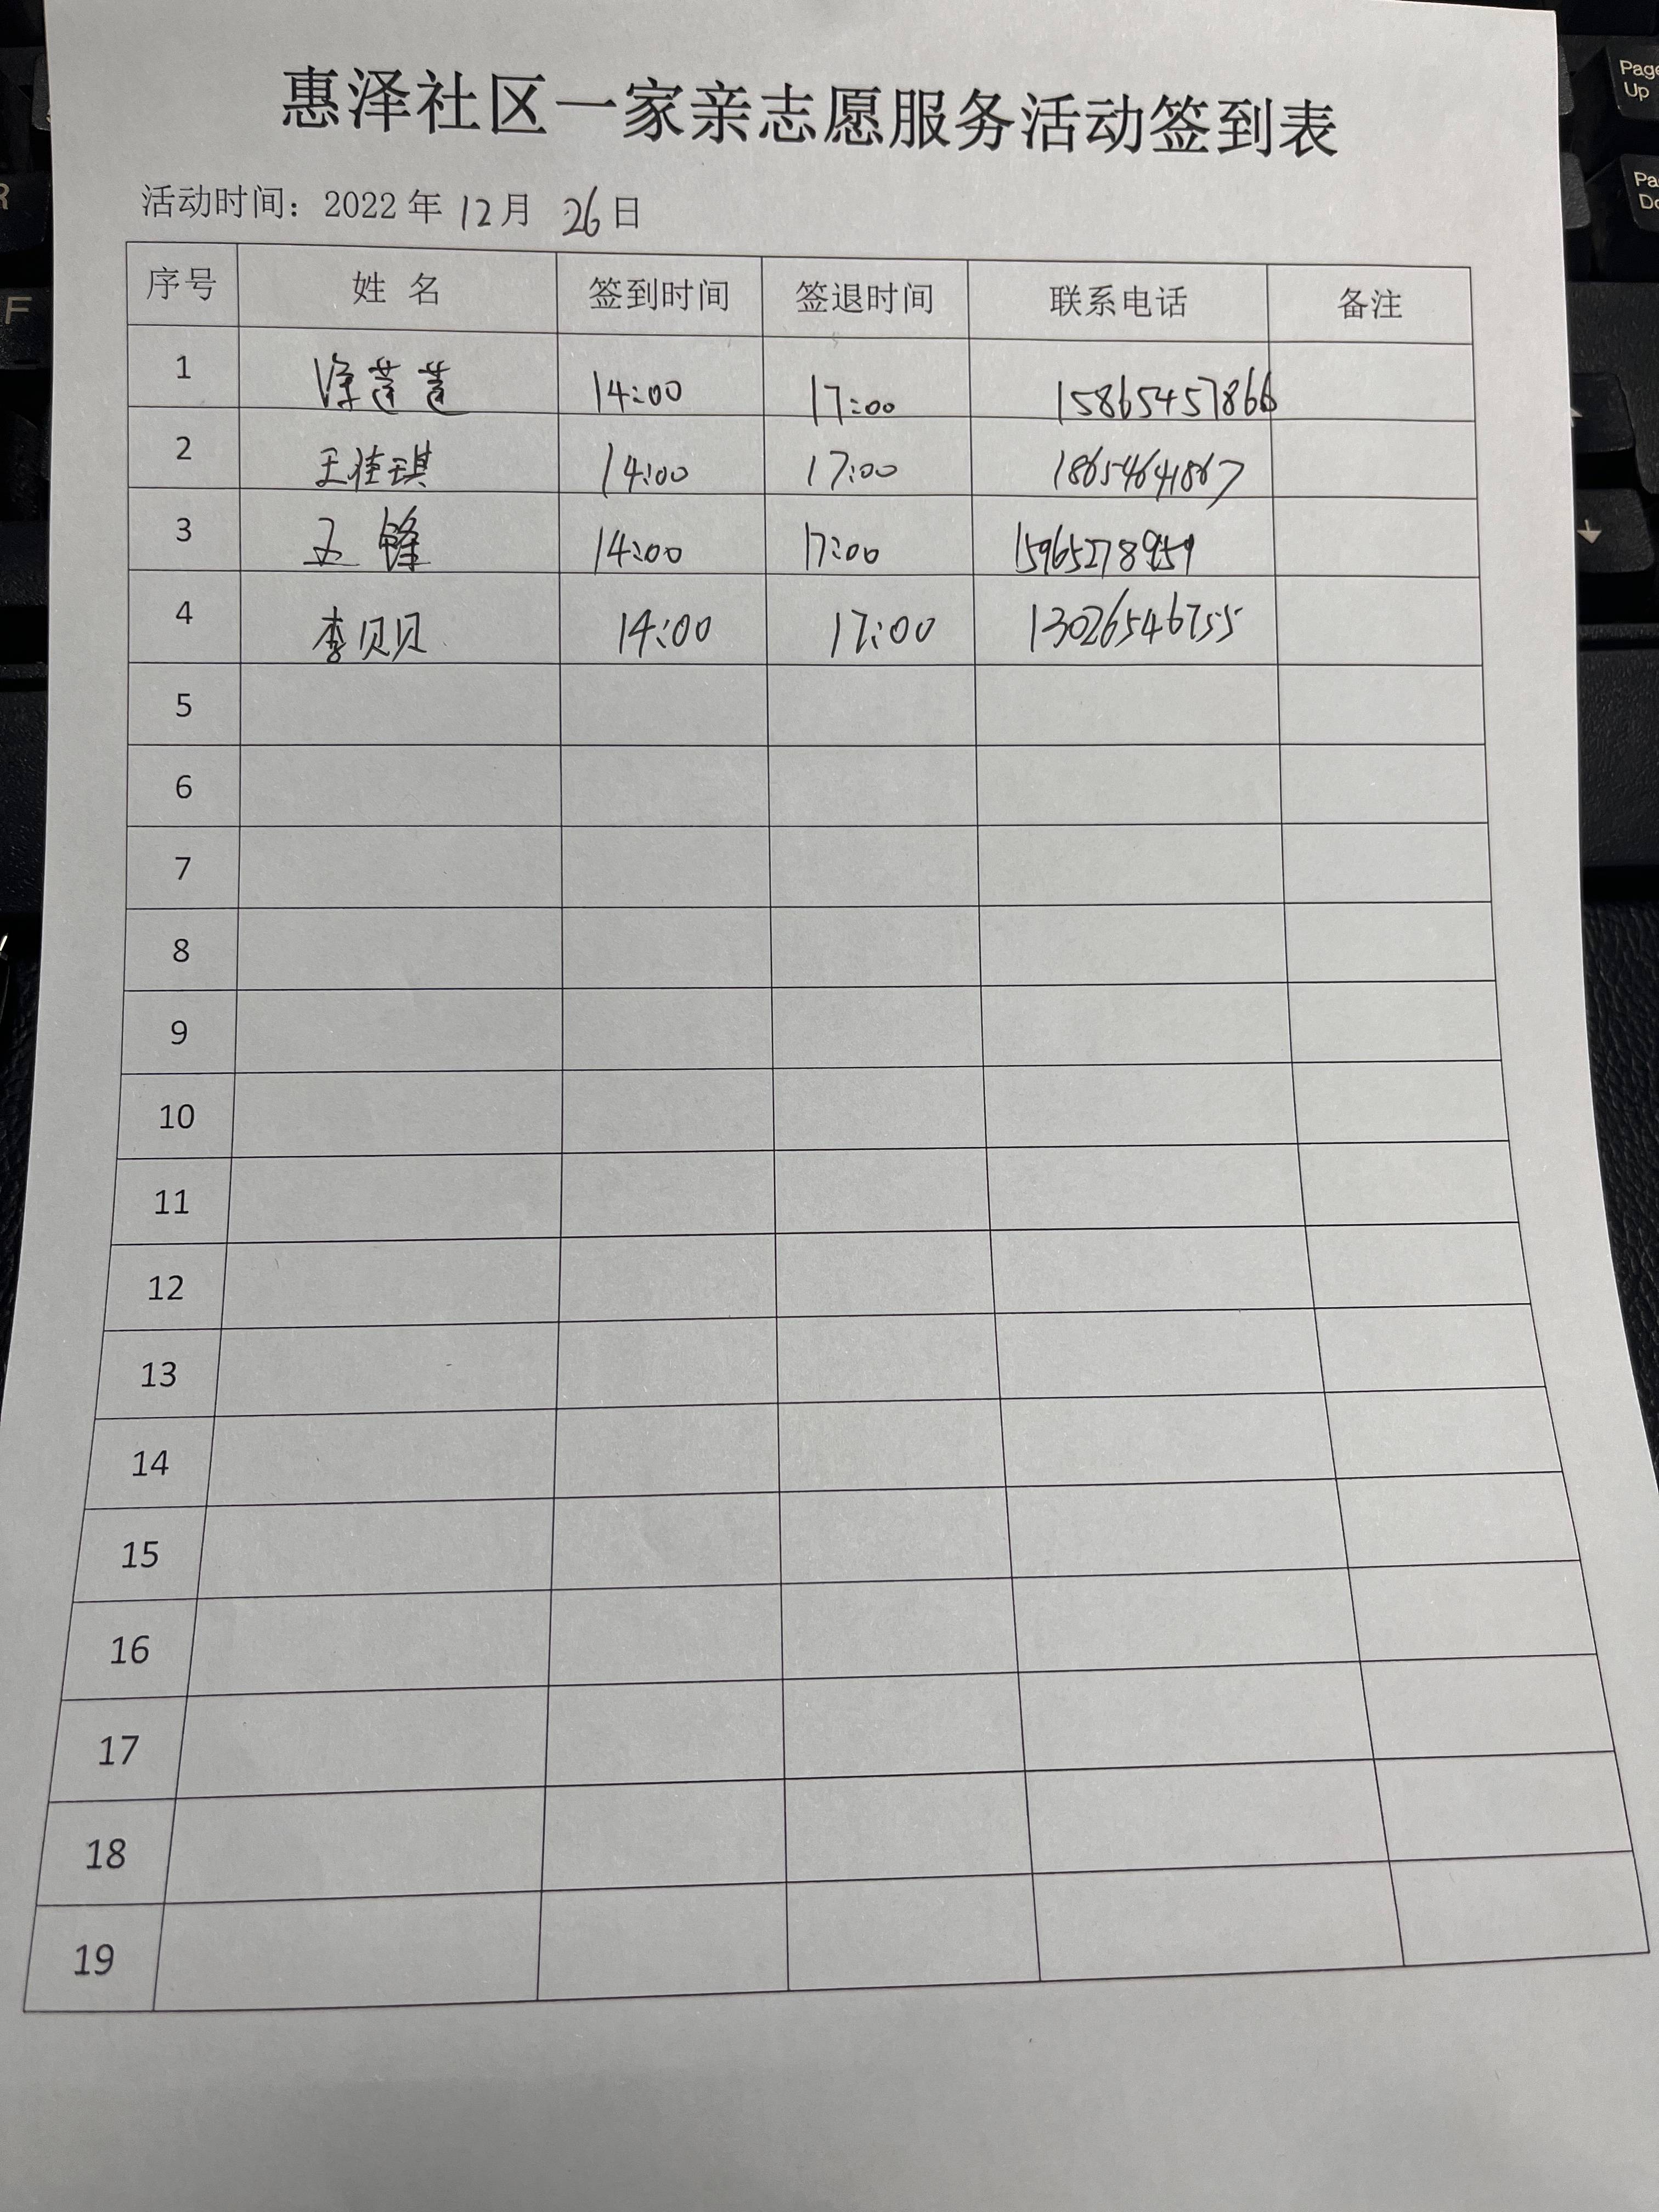 惠泽社区一家亲志愿服务活动签到表
活动时间：2022 年 12 月 26 日
序号 姓 名 签到时间 签退时间 联系电话 备注
1 徐莲莲 14:00 17:00 15865457866
2 王佳琪 14:00 17:00 18654641867
3 王锋 14:00 17:00
4 李贝贝 14:00 17:00 13026546755
5
6
7
8
9
10
11
12
13
14
15
16
17
18
19
Page Up
R
F